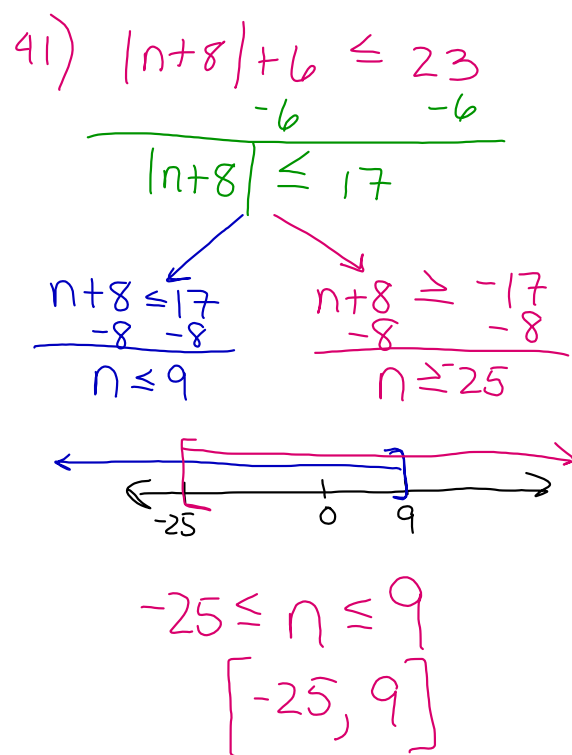 41) |n+8|+6 ≤ 23
-6 -6
|n+8| ≤ 17
n+8 ≤ 17 n+8 ≥ -17
-8 -8 -8 -8
n ≤ 9 n ≥ 25
-25 0 9
-25 ≤ n ≤ 9
[-25, 9]